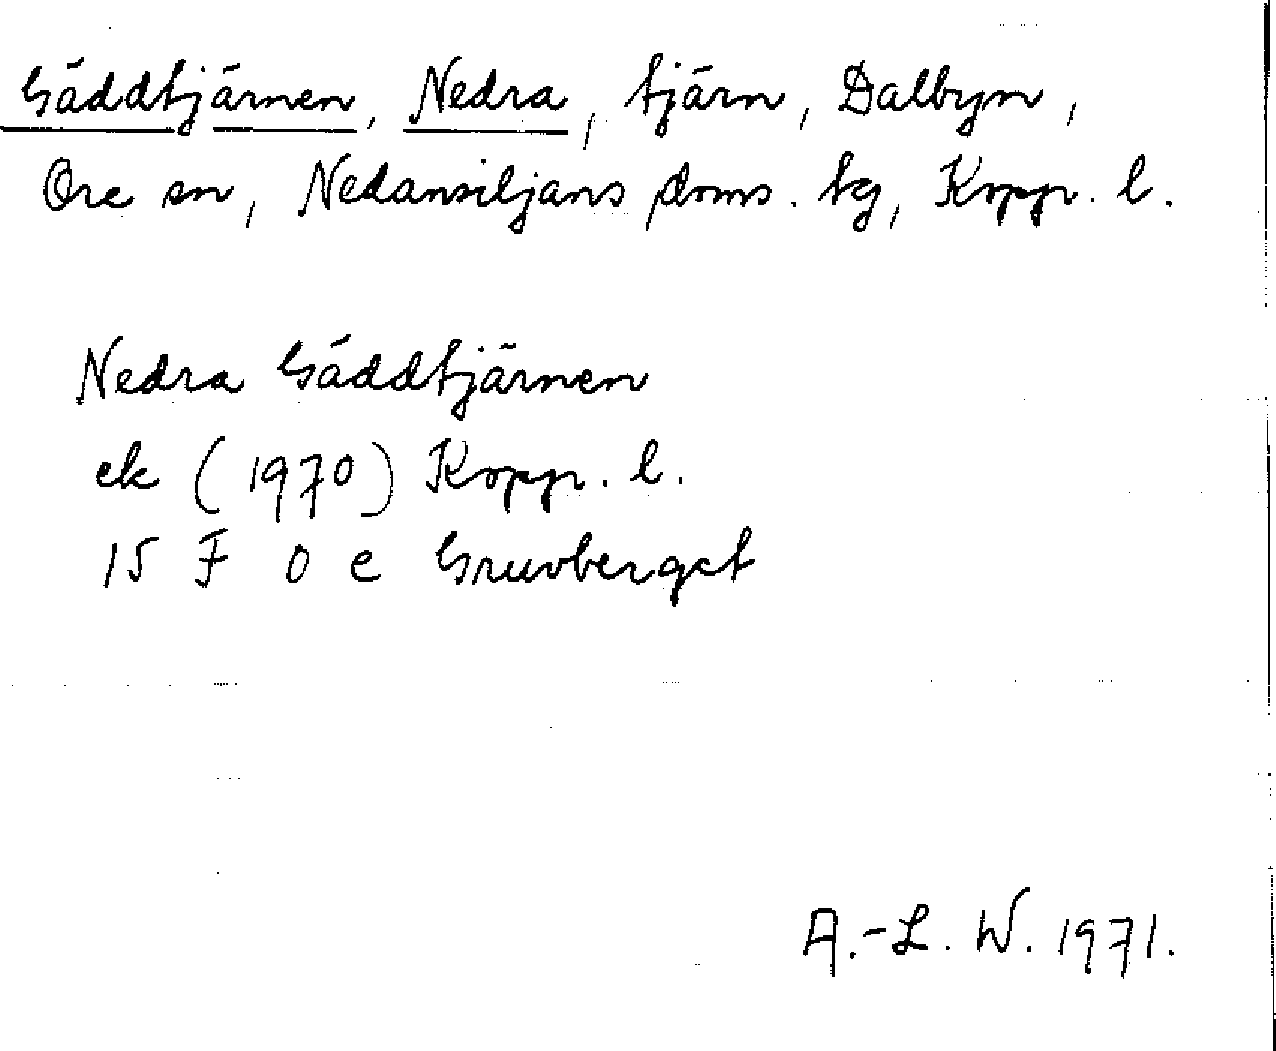 Gäddtjärnen, Nedra, tjärn, Dalbyn,
Ore sn, Nedansiljans doms. tg, Koppr. l.
Nedra Gäddtjärnen
ek (1970) Koppr. l.
15 F 0 e Gruvberget
A.-L. W. 1971.